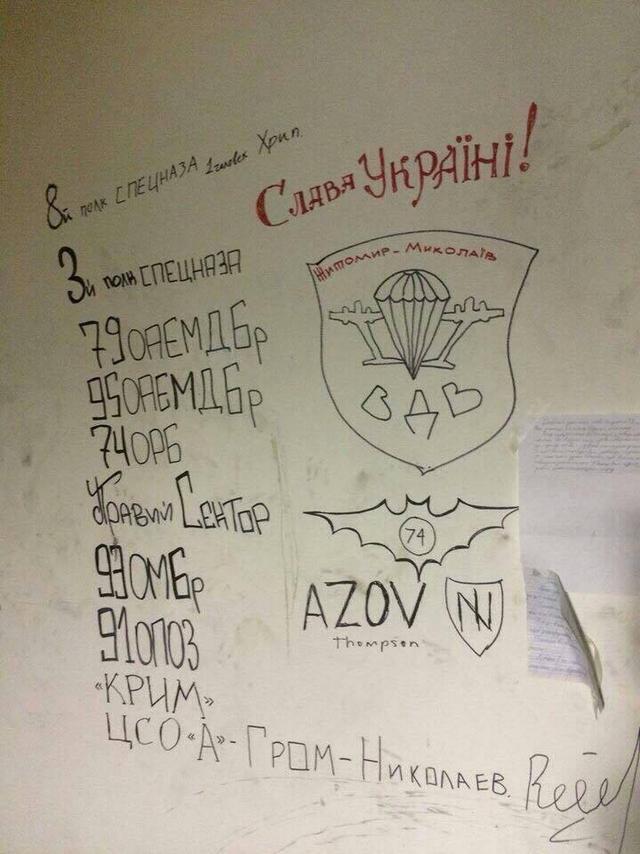 8й полк СПЕЦНАЗА 1 человек Хрип.
Слава Україні!
3й полк СПЕЦНАЗА
79ОАЕМДБр
95ОАЕМДБр
74ОРБ
Правий Сектор
93ОМБр
91ОПОЗ
«КРИМ»
ЦСО «А» - ГРОМ - НИКОЛАЕВ.
Житомир - Миколаїв
ВДВ
74
AZOV
Thompson